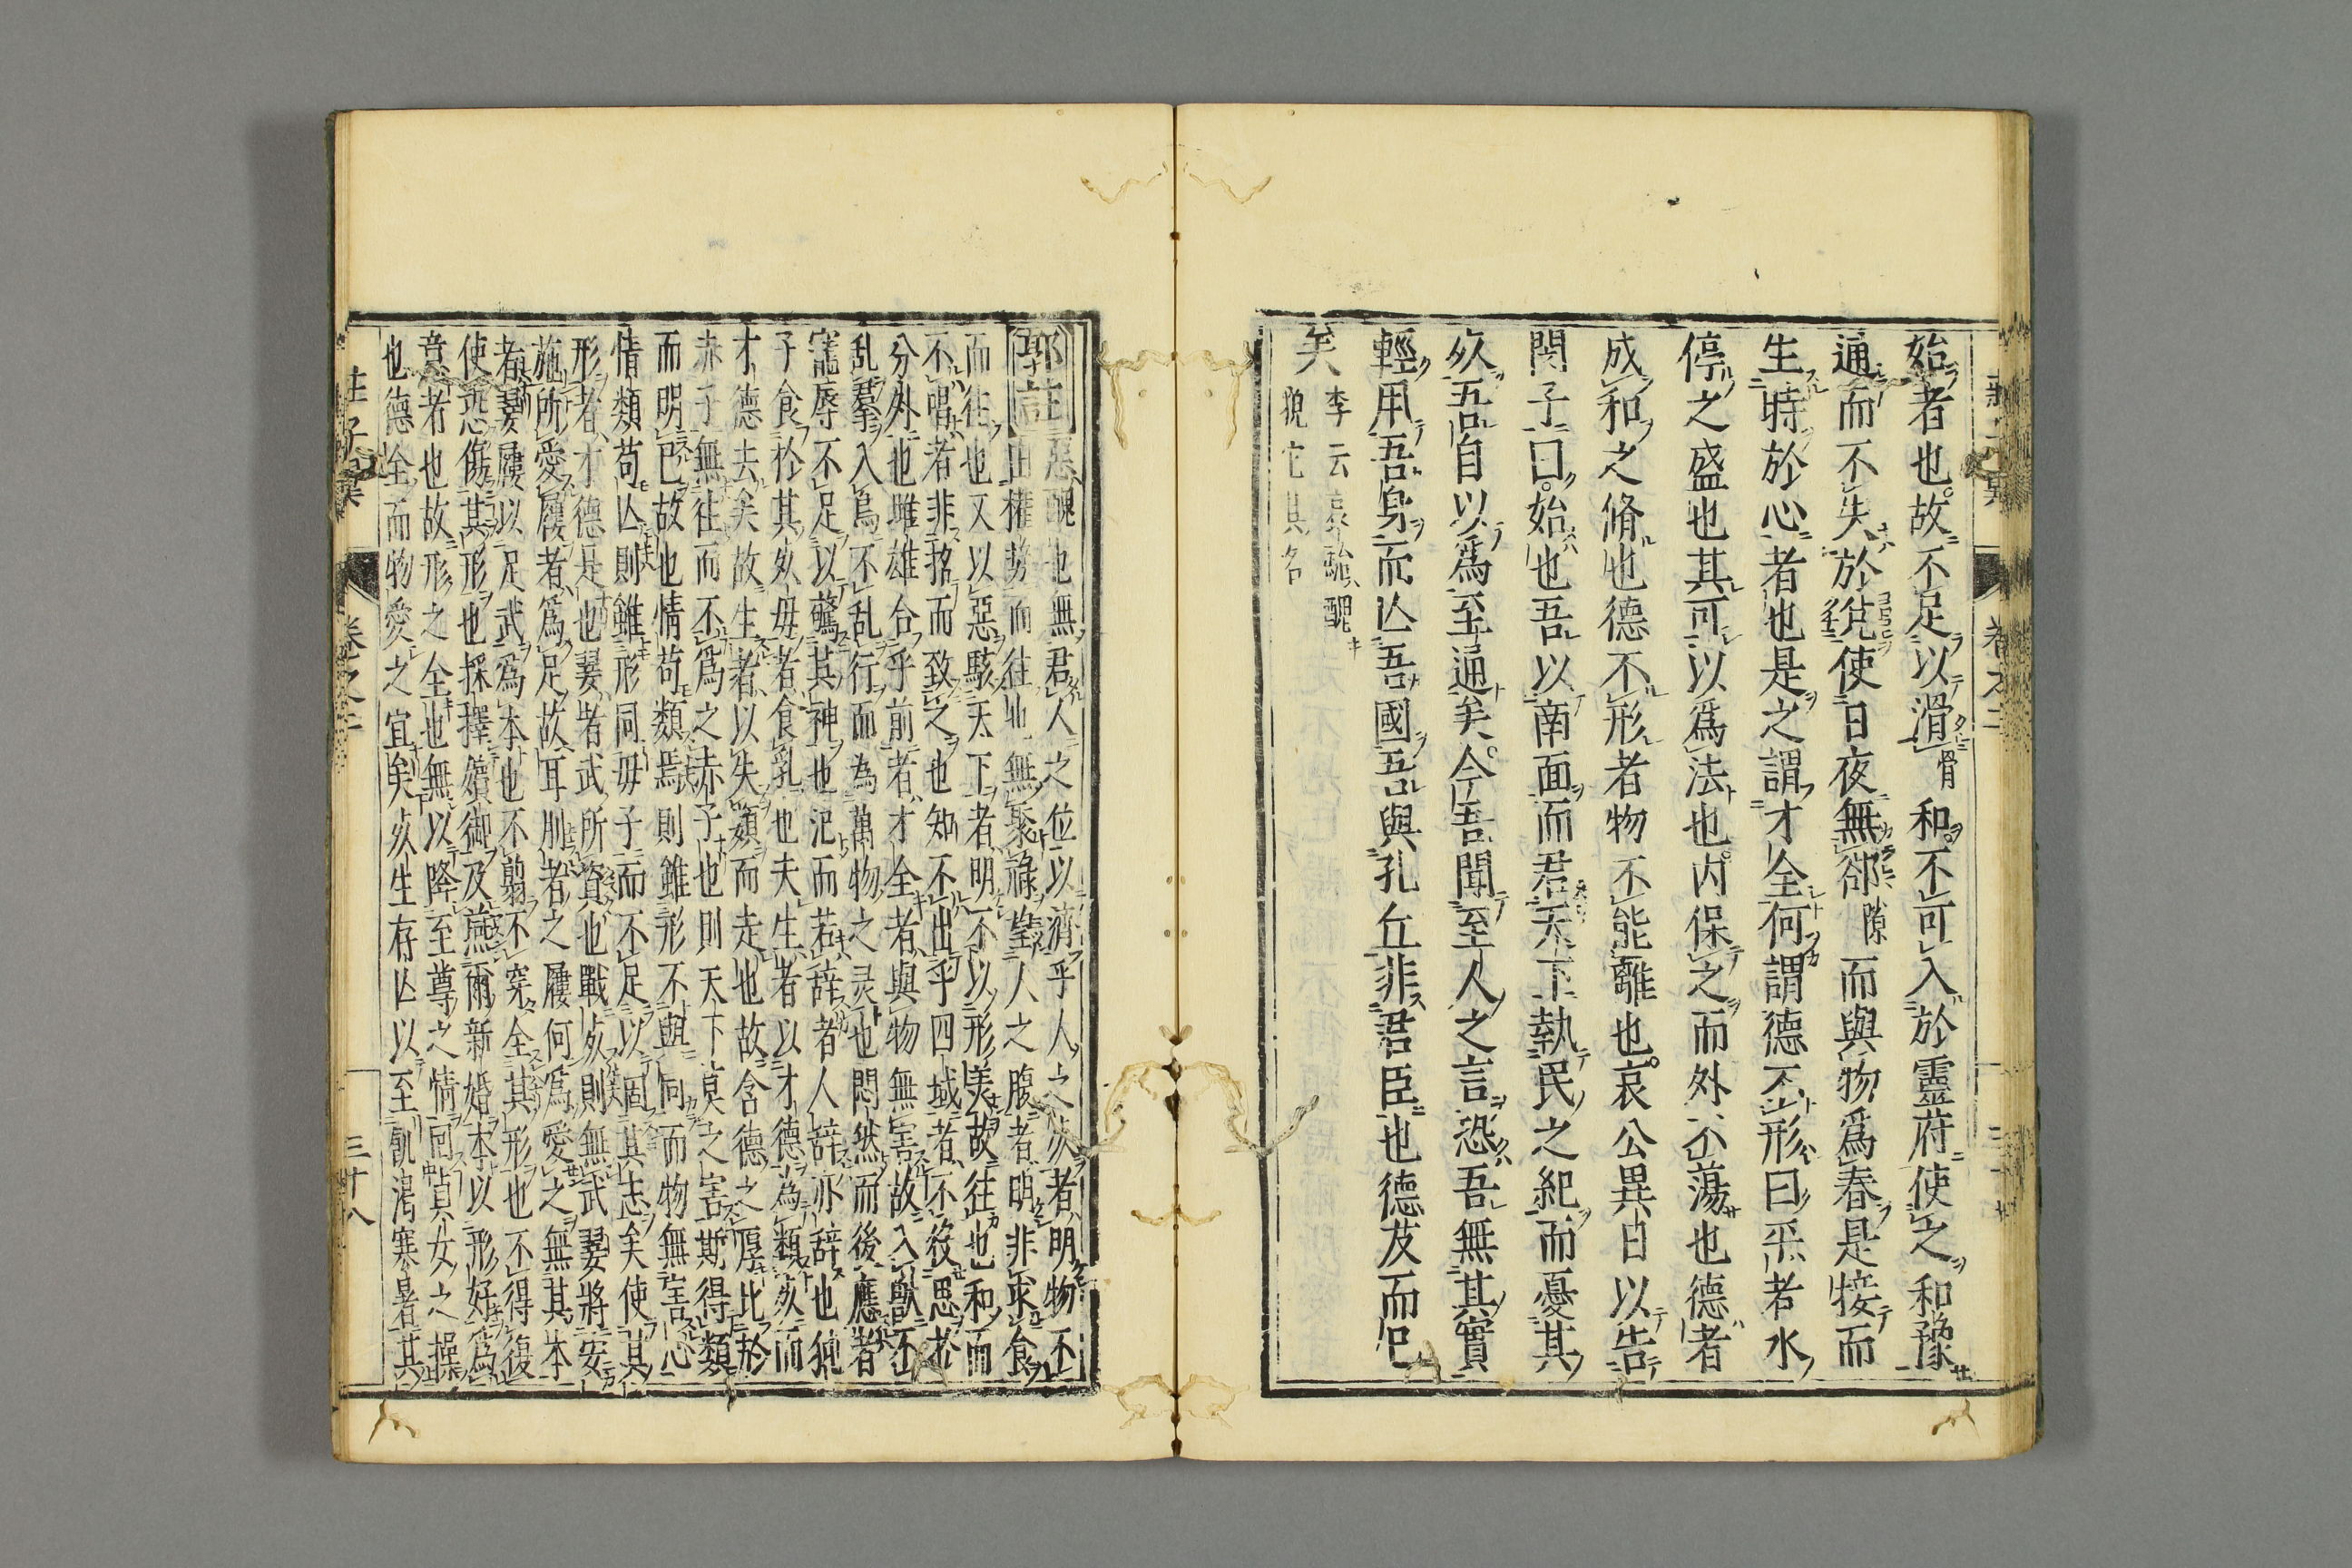 始者也故不足以滑骨和不可入於靈府使之和豫
通而不失於兌使日夜無郤隙而與物爲春是接而
生時於心者也是之謂才全何謂德不形曰平者水
停之盛也其可以爲法也内保之而外不蕩也德者
成和之脩也德不形者物不能離也哀公異日以告
閔子曰始也吾以南面而君天下執民之紀而憂其
死吾自以爲至通矣今吾聞至人之言恐吾無其實
輕用吾身而亾吾國吾與孔丘非君臣也德友而已
矣
李云哀駘醜
貌它其名
郭註惡醜也無君人之位以濟乎人之死者明物不
由權勢而往也無聚祿以望人之腹者明非求食
而往也又以惡駭天下者明不以形美故往也和而
不唱者非招而致之也知不出乎四域者不役思於
分外也雌雄合乎前者才全者與物無害故入獸不
乱羣入鳥不乱行而為萬物之灵也悶然而後應者
寵辱不足以驚其神也氾而若辞者人辞亦辞也㹠
子食於其死母者食乳也夫生者以才德為類死而
才德去矣故生者以失類而走也故含德之厚比於
赤子無往而不爲之赤子也則天下莫之害斯得類
而明已故也情苟類焉則雖形不與同而物無害心
情類苟亾則雖形同母子而不足以固其志矣使其
形者才德是也翣者武所資也戰死則無武翣將安
施所愛屨者爲足故耳刖者之屨何爲愛之無其本
者翣屨以足武爲本也不翦不穿全其形也不得復
使恐傷其形也採擇嬪御及燕爾新婚本以形好爲
意者也故形之全也無以降至尊之情回貞女之操
也德全而物愛之宜矣死生存亾以至飢渇寒暑其
卷之二
三十八